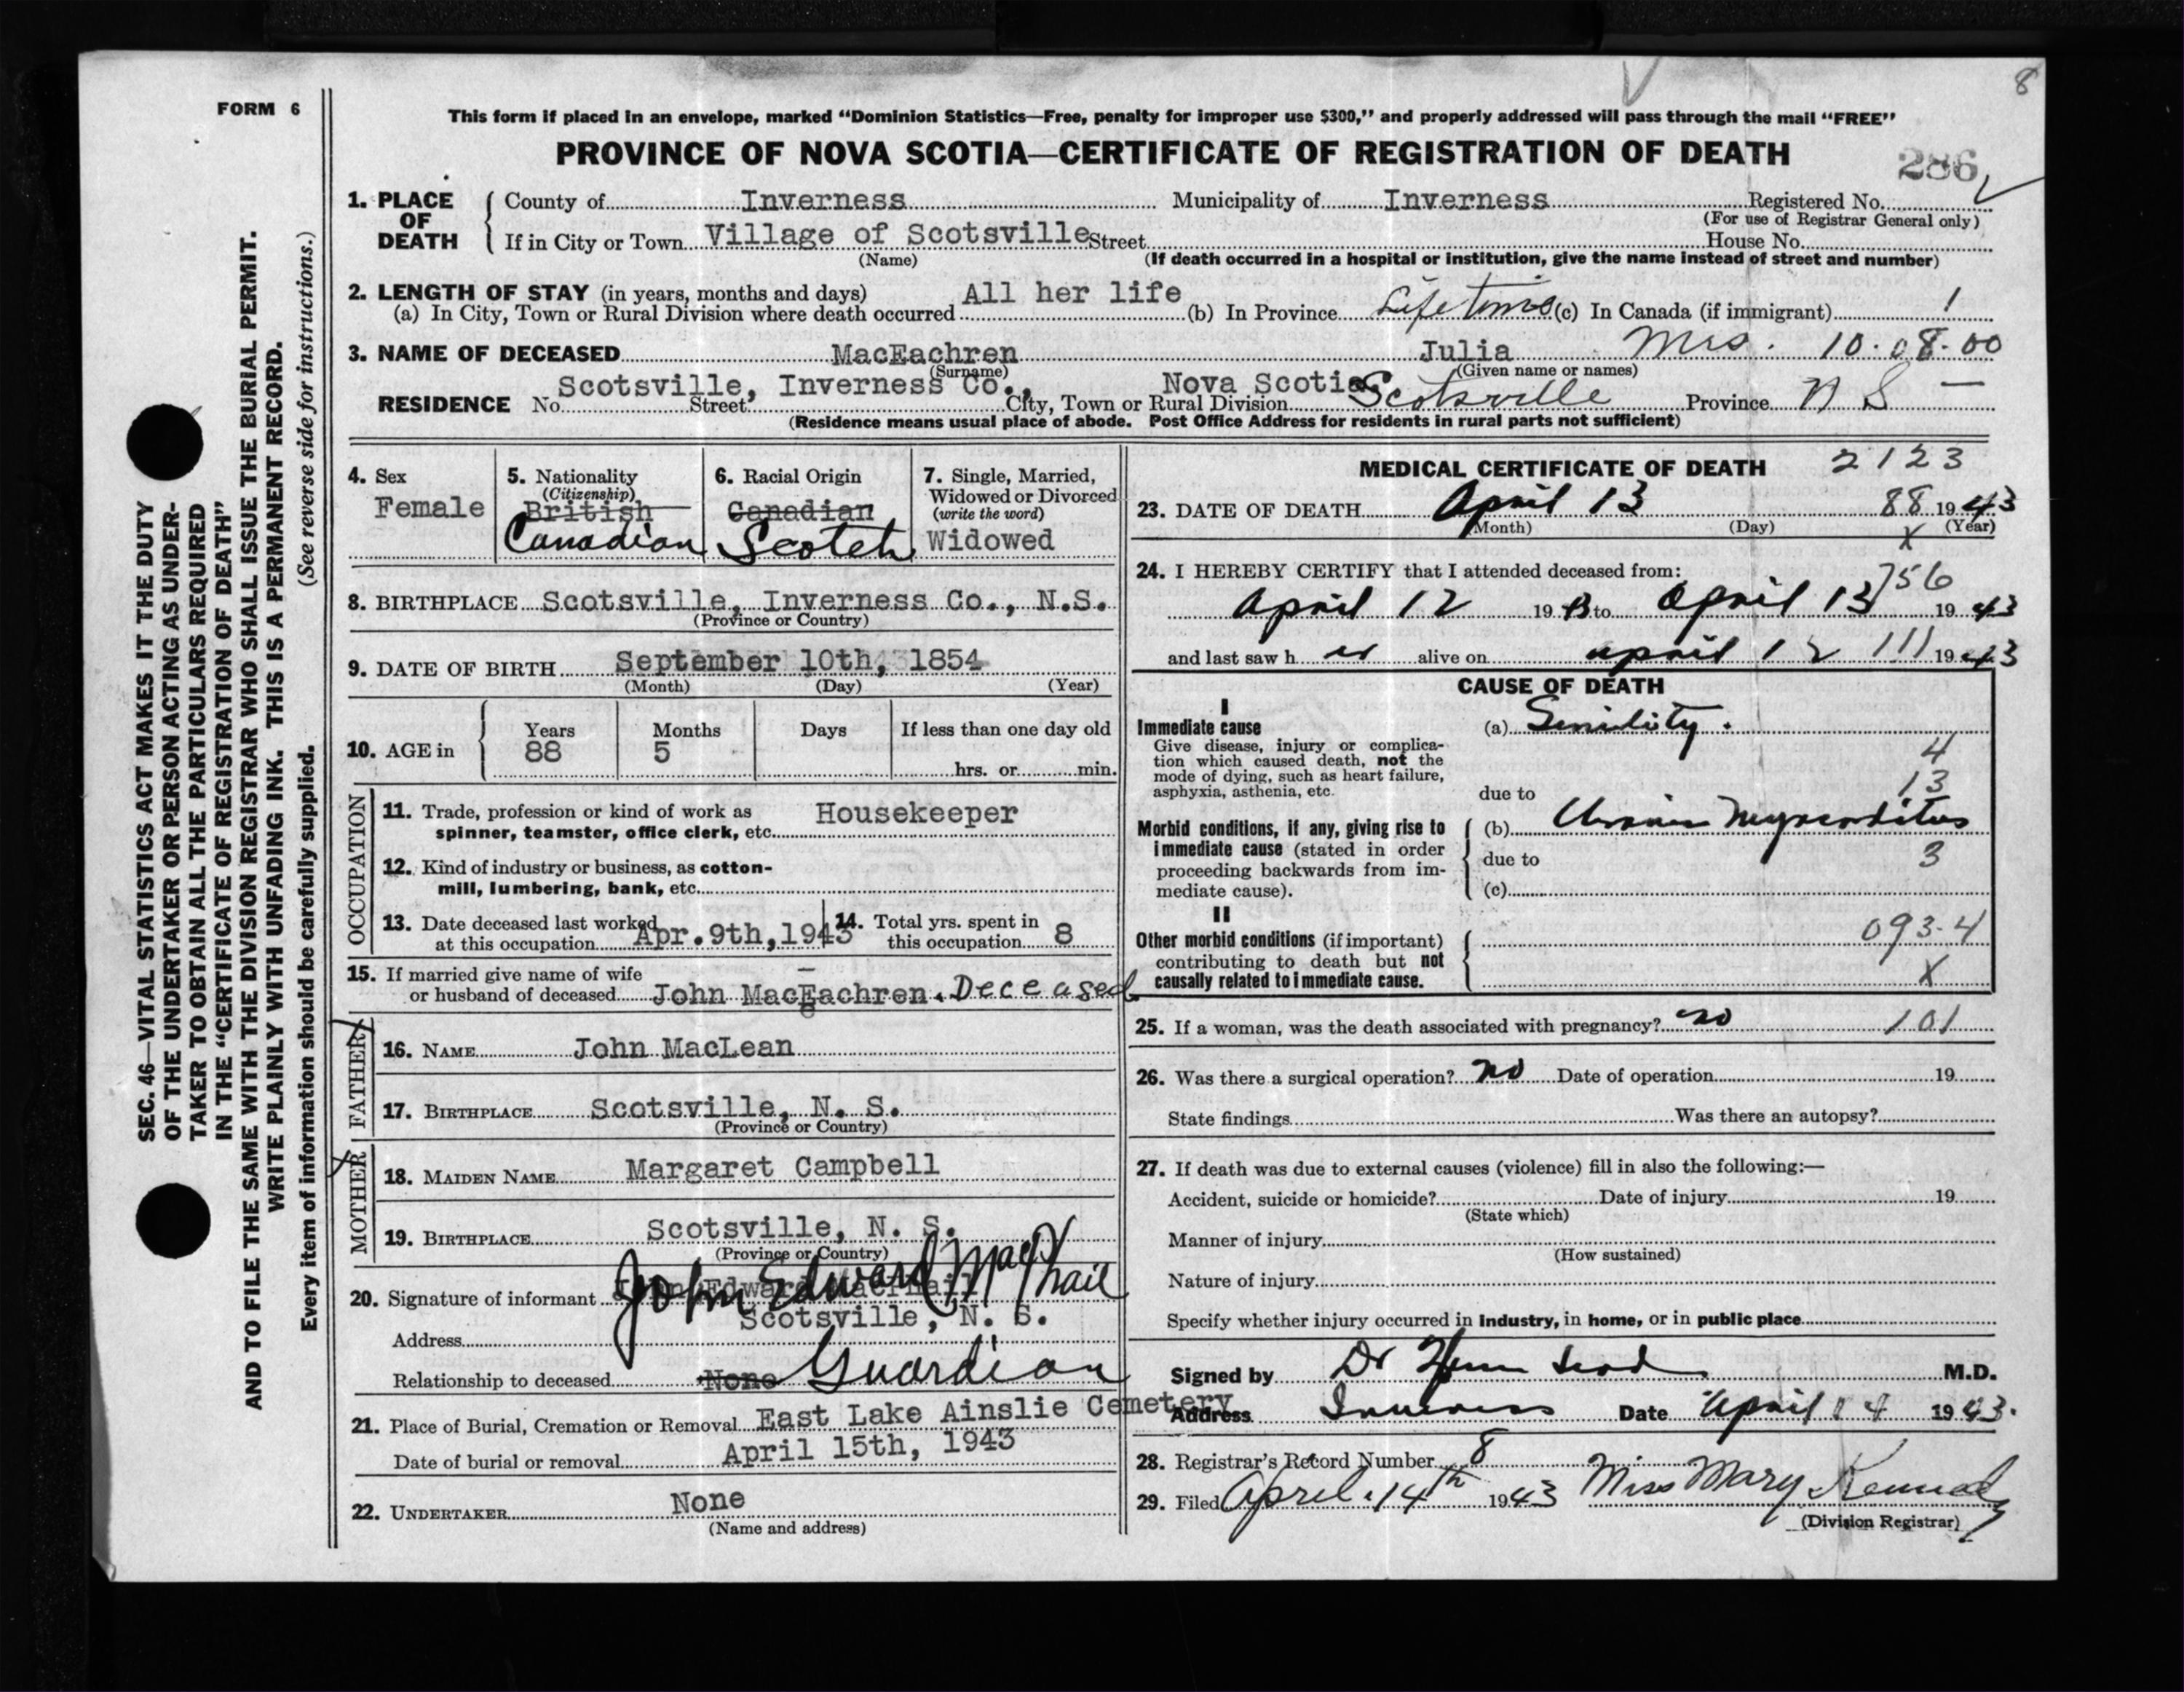 8
FORM 6
This form if placed in an envelope, marked "Dominion Statistics—Free, penalty for improper use $300," and properly addressed will pass through the mail "FREE"
PROVINCE OF NOVA SCOTIA—CERTIFICATE OF REGISTRATION OF DEATH
286
SEC. 46—VITAL STATISTICS ACT MAKES IT THE DUTY
OF THE UNDERTAKER OR PERSON ACTING AS UNDER-
TAKER TO OBTAIN ALL THE PARTICULARS REQUIRED
IN THE "CERTIFICATE OF REGISTRATION OF DEATH"
AND TO FILE THE SAME WITH THE DIVISION REGISTRAR WHO SHALL ISSUE THE BURIAL PERMIT.
WRITE PLAINLY WITH UNFADING INK. THIS IS A PERMANENT RECORD.
Every item of information should be carefully supplied. (See reverse side for instructions.)
1. PLACE OF DEATH
County of Inverness Municipality of Inverness Registered No.
(For use of Registrar General only)
If in City or Town Village of Scotsville Street House No.
(Name) (If death occurred in a hospital or institution, give the name instead of street and number)
2. LENGTH OF STAY (in years, months and days)
(a) In City, Town or Rural Division where death occurred All her life (b) In Province Life time (c) In Canada (if immigrant) 1
3. NAME OF DECEASED MacEachren Julia Mrs. 10.08.00
(Surname) (Given name or names)
Scotsville, Inverness Co., Nova Scotia
RESIDENCE No. Street City, Town or Rural Division Scotsville Province N S —
(Residence means usual place of abode. Post Office Address for residents in rural parts not sufficient)
4. Sex
Female
5. Nationality
(Citizenship)
British
Canadian
6. Racial Origin
Canadian
Scotch
7. Single, Married,
Widowed or Divorced
(write the word)
Widowed
8. BIRTHPLACE Scotsville, Inverness Co., N.S.
(Province or Country)
9. DATE OF BIRTH September 10th, 1854
(Month) (Day) (Year)
10. AGE in
Years Months Days If less than one day old
88 5
hrs. or min.
OCCUPATION
11. Trade, profession or kind of work as
spinner, teamster, office clerk, etc. Housekeeper
12. Kind of industry or business, as cotton-
mill, lumbering, bank, etc.
13. Date deceased last worked
at this occupation Apr.9th,1943
14. Total yrs. spent in
this occupation 8
15. If married give name of wife
or husband of deceased John MacEachren. Deceased
FATHER
16. NAME John MacLean
17. BIRTHPLACE Scotsville, N. S.
(Province or Country)
MOTHER
18. MAIDEN NAME Margaret Campbell
19. BIRTHPLACE Scotsville, N. S.
(Province or Country)
20. Signature of informant John Edward MacPhail
John Edward MacPhail
Address Scotsville, N. S.
Relationship to deceased None Guardian
21. Place of Burial, Cremation or Removal East Lake Ainslie Cemetery
Date of burial or removal April 15th, 1943
22. UNDERTAKER None
(Name and address)
MEDICAL CERTIFICATE OF DEATH 2123
23. DATE OF DEATH April 13 88 1943
(Month) (Day) (Year)
X
24. I HEREBY CERTIFY that I attended deceased from:
756
April 12 19 43 to April 13 19 43
and last saw her alive on April 12 111 19 43
CAUSE OF DEATH
I
Immediate cause
Give disease, injury or complica-
tion which caused death, not the
mode of dying, such as heart failure,
asphyxia, asthenia, etc.
(a) Senility.
4
13
due to
Morbid conditions, if any, giving rise to
immediate cause (stated in order
proceeding backwards from im-
mediate cause).
(b) Chronic Myocarditus
due to 3
(c)
II
Other morbid conditions (if important)
contributing to death but not
causally related to immediate cause.
093-4
X
25. If a woman, was the death associated with pregnancy? no 101
26. Was there a surgical operation? no Date of operation 19
State findings Was there an autopsy?
27. If death was due to external causes (violence) fill in also the following:—
Accident, suicide or homicide? Date of injury 19
(State which)
Manner of injury
(How sustained)
Nature of injury
Specify whether injury occurred in industry, in home, or in public place
Signed by Dr M.D.
Address Inverness Date April 14 1943.
28. Registrar's Record Number 8
29. Filed April 14th 1943 Miss Mary Kennedy
(Division Registrar)